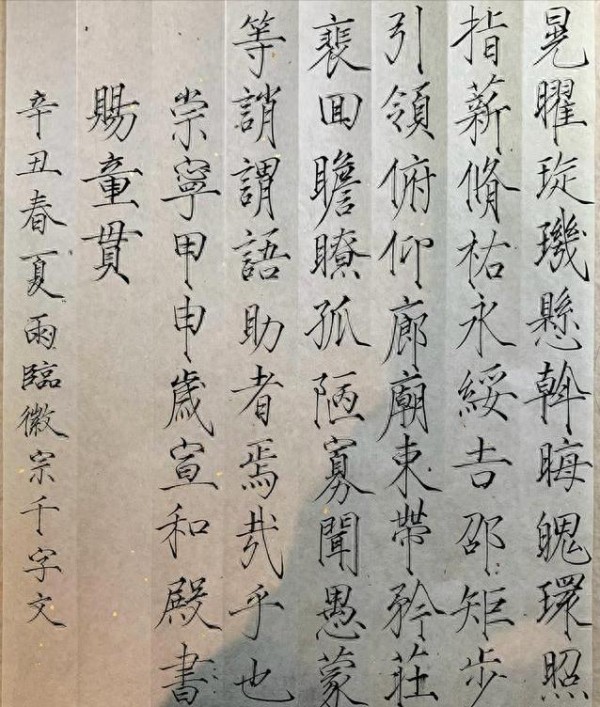 晃曜琁璣懸斡晦魄環照
指薪脩祐永綏吉邵矩步
引領俯仰廊廟束帶矜莊
裵回瞻瞭孤陋寡聞愚蒙
等誚謂語助者焉哉乎也
崇寧甲申歲宣和殿書
賜童貫
辛丑春夏雨臨徽宗千字文